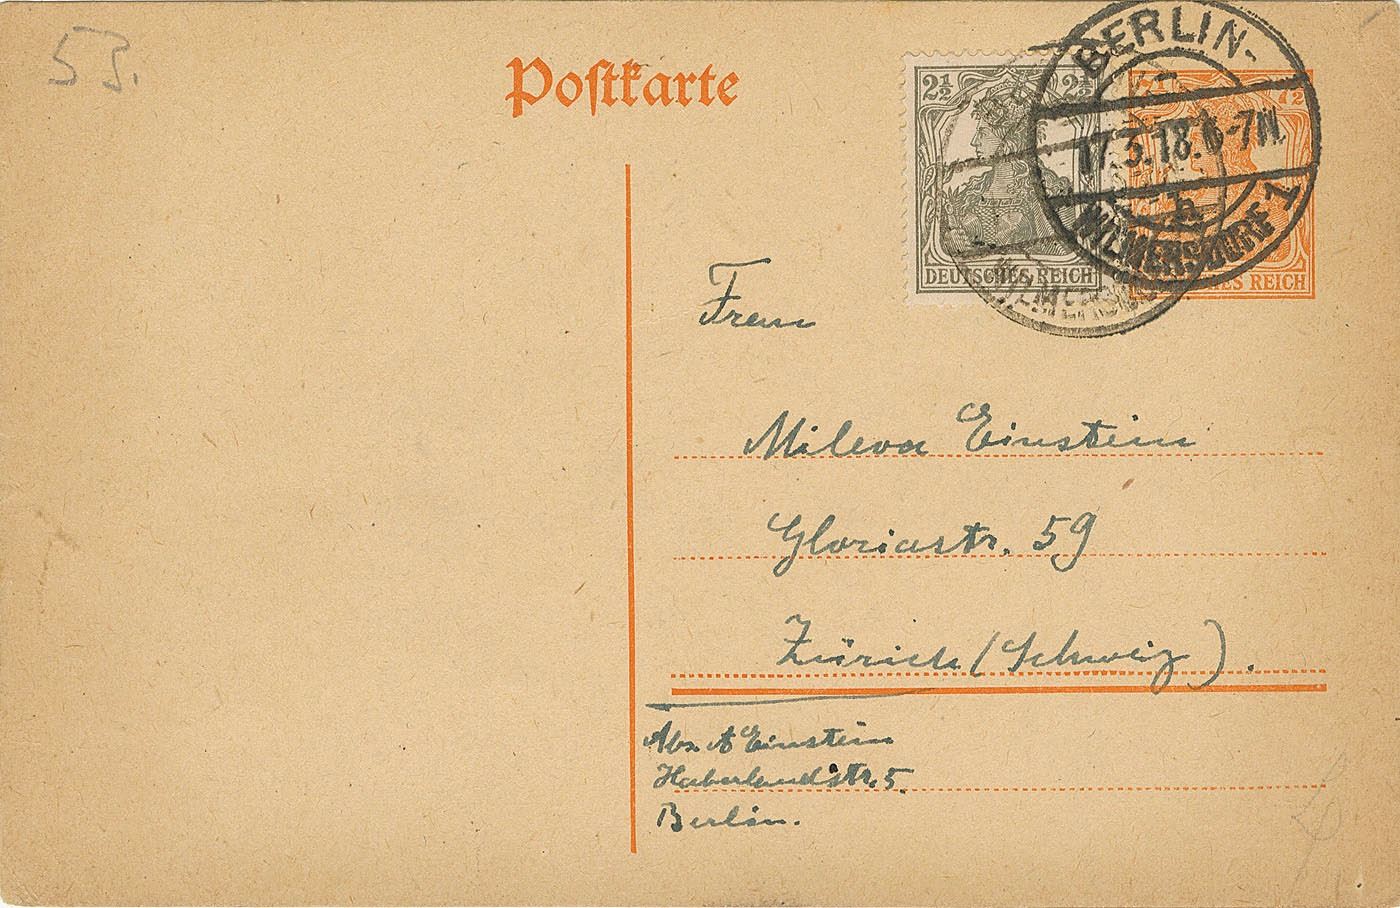 53.
Postkarte
2½ 2½
7½
DEUTSCHES REICH
REICH
BERLIN-
17.3.18. 6-7N.
WILMERSDORF 1
Frau
Mileva Einstein
Gloriastr. 59
Zürich (Schweiz).
Abs. A Einstein
Haberlandstr. 5.
Berlin.